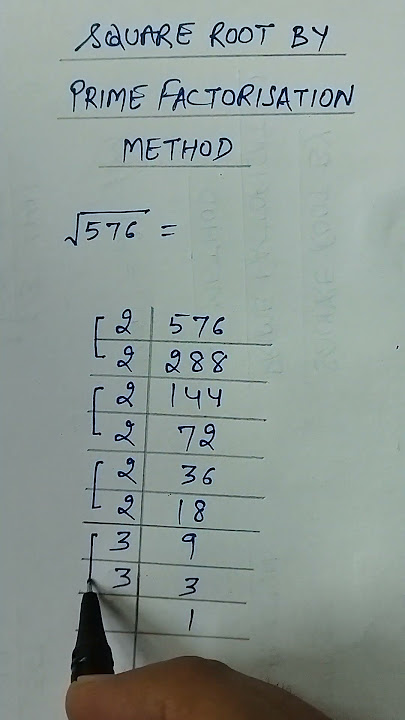 SQUARE ROOT BY
PRIME FACTORISATION
METHOD
√576 =
2 | 576
2 | 288
2 | 144
2 | 72
2 | 36
2 | 18
3 | 9
3 | 3
| 1